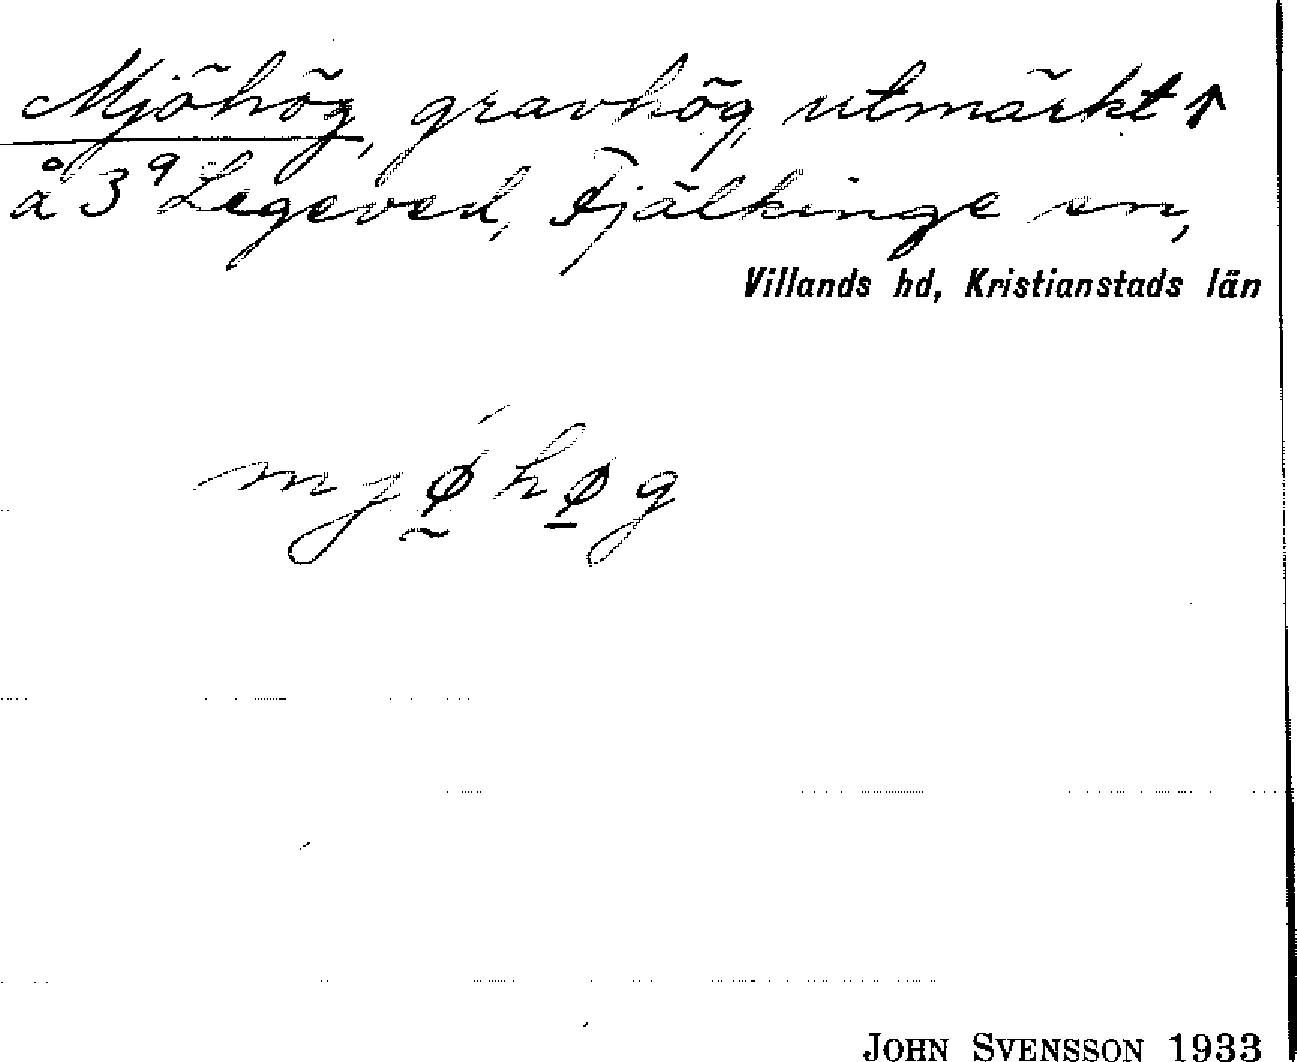 Mjöhög, gravhög, utmärkt ↑
å 3⁹ Legeved, Fjälkinge sn,
Villands hd, Kristianstads län
mjǿ̰hø̱g
JOHN SVENSSON 1933